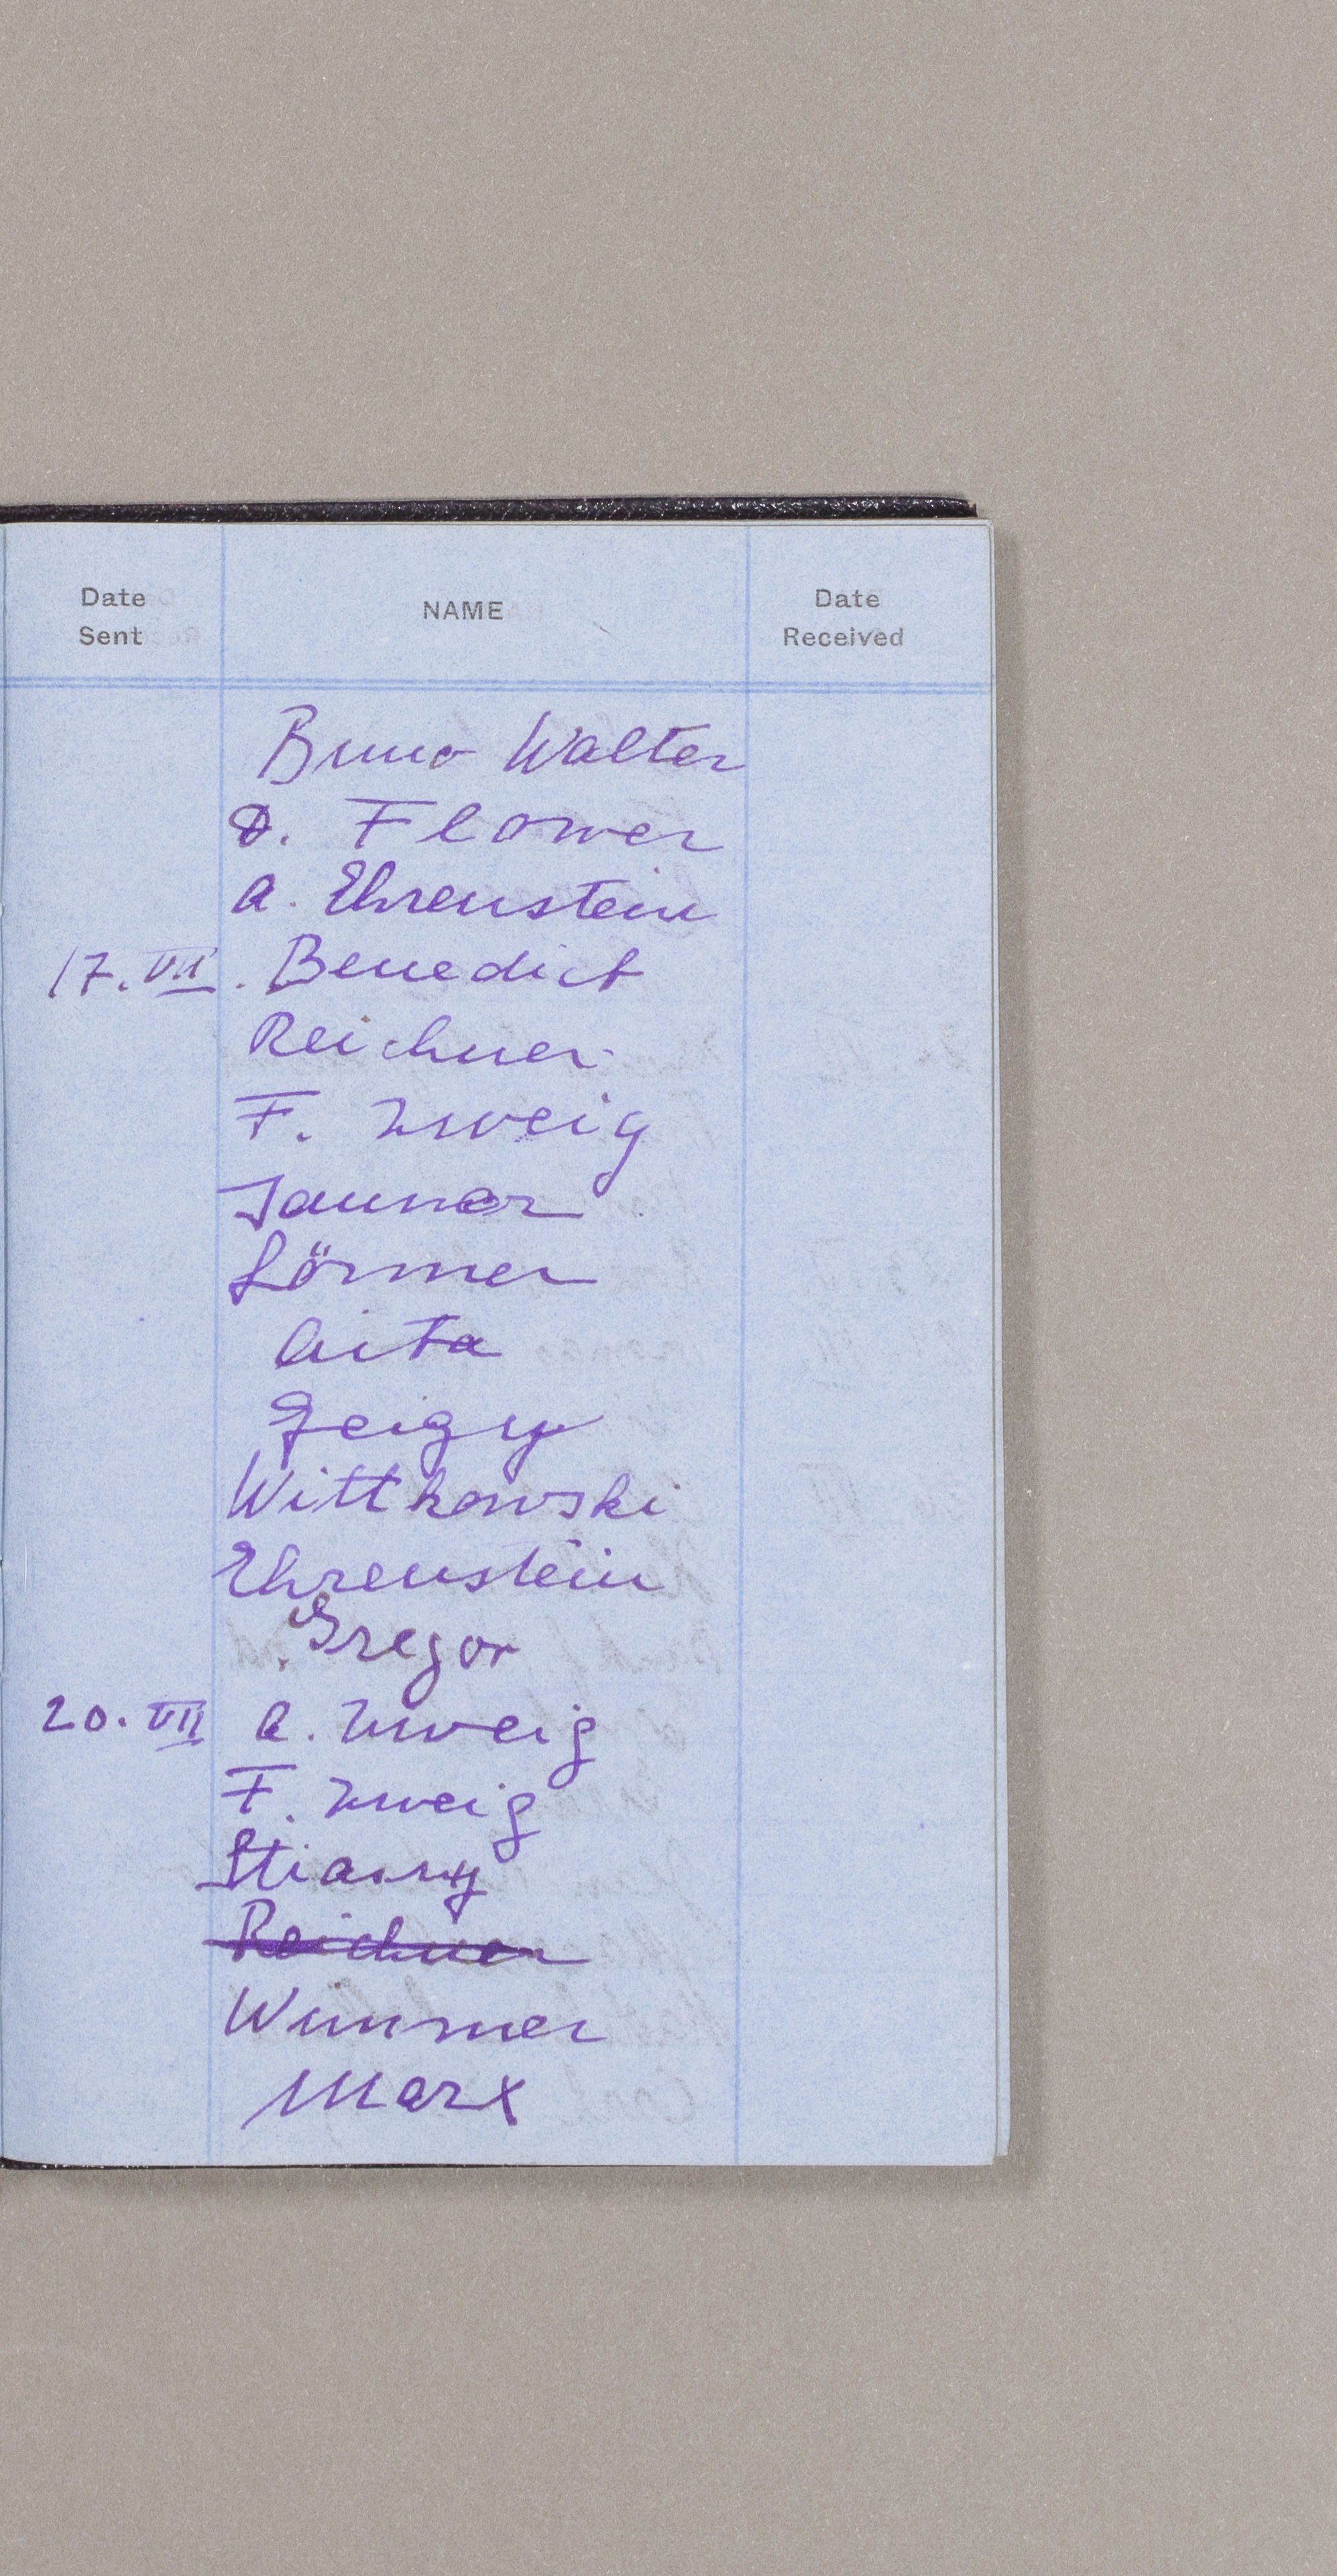 Date Sent NAME Date Received
Bruno Walter
D. Flower
A. Ehrenstein
17. VII. Benedict
Reichner
F. Zweig
Jauner
Lörmer
Geigy
Wittkowski
Ehrenstein
Gregor
20. VII A. Zweig
F. Zweig
Stiasny
Reichner
Wimmer
Marx